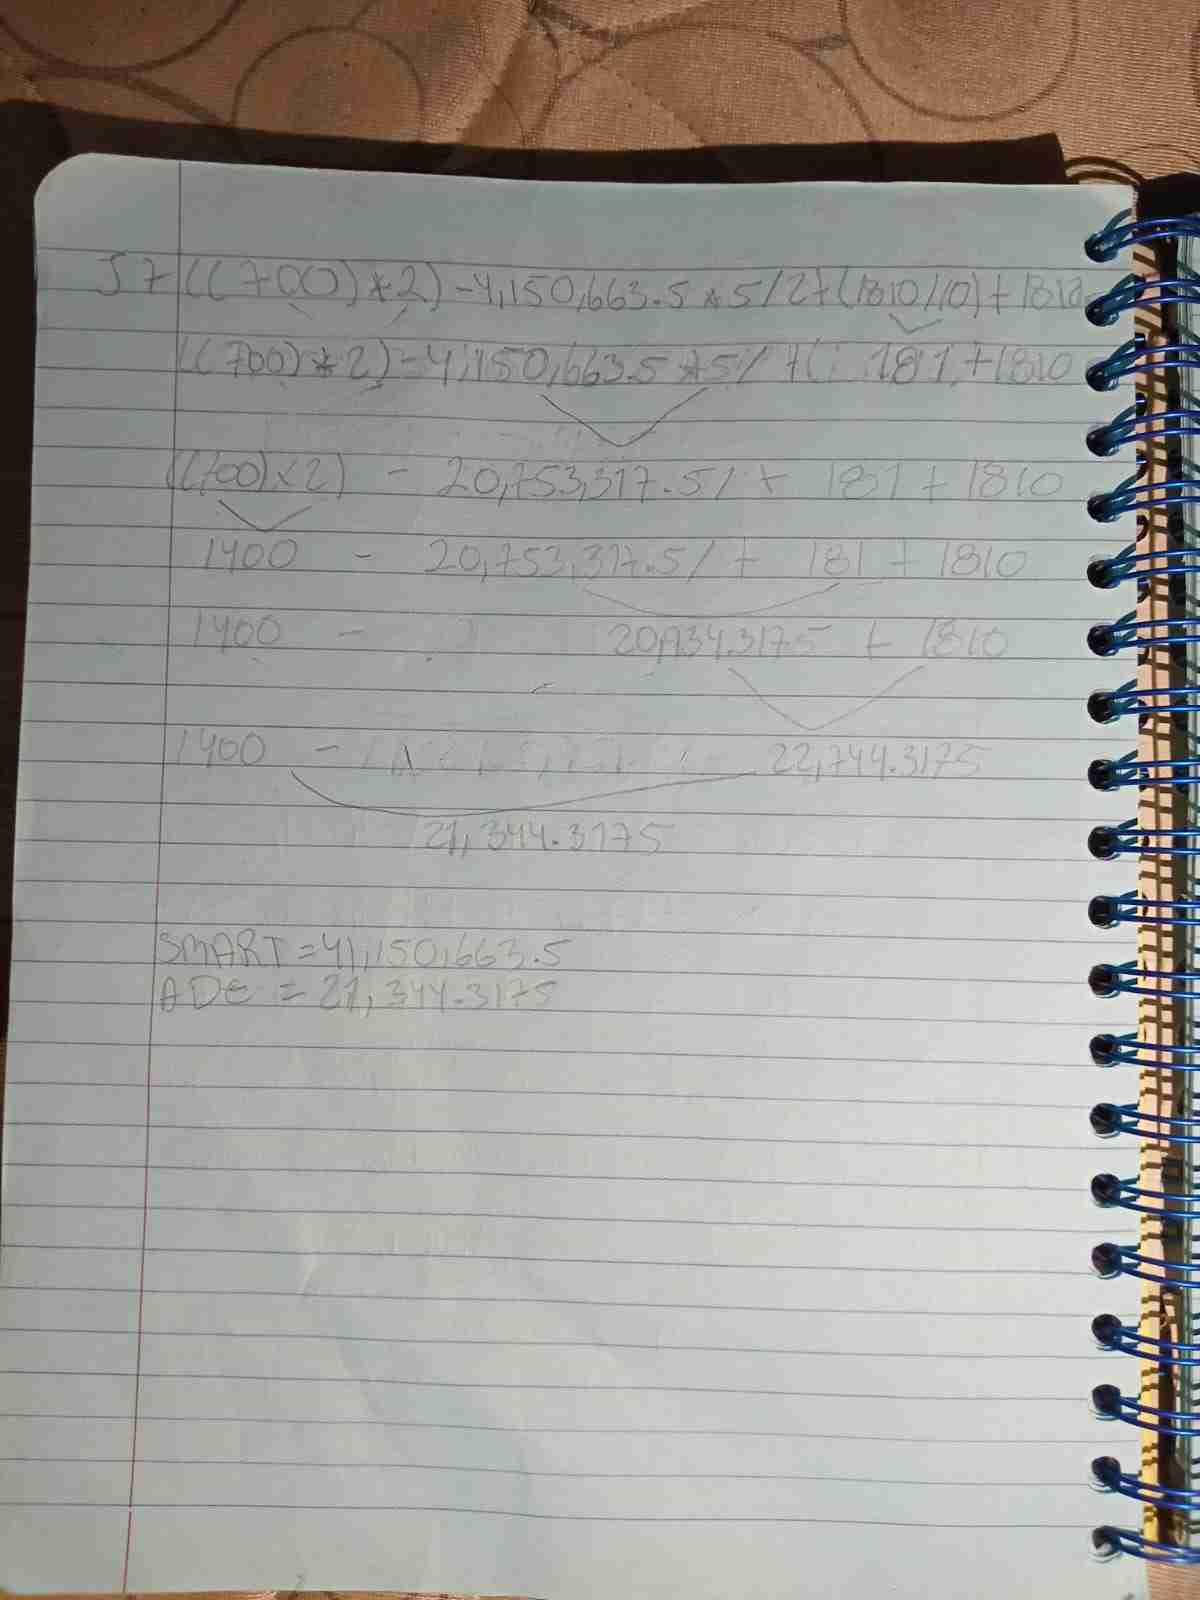 57 ((700)*2)-4,150,663.5*5/2+(1810/10)+1810
((700)*2)-4,150,663.5*5/ +( 181 + 1810
((700)x2) - 20,753,317.5/ + 181 + 1810
1400 - 20,753,317.5/ + 181 + 1810
1400 - 20,934.3175 + 1810
1400 - 22,744.3175
21,344.3175
SMART=41,150,663.5
ADE = 21,344.3175